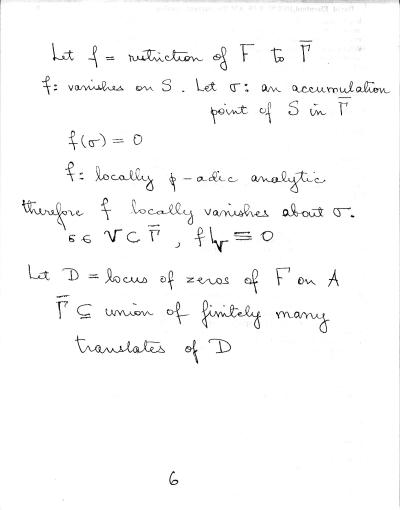 Let f = restriction of F to Γ̅
f: vanishes on S. Let σ: an accumulation
point of S in Γ̅
f(σ) = 0
f: locally p-adic analytic
therefore f locally vanishes about σ.
σ ∈ V ⊂ Γ̅, f|_V ≡ 0
Let D = locus of zeros of F on A
Γ̅ ⊆ union of finitely many
translates of D
6